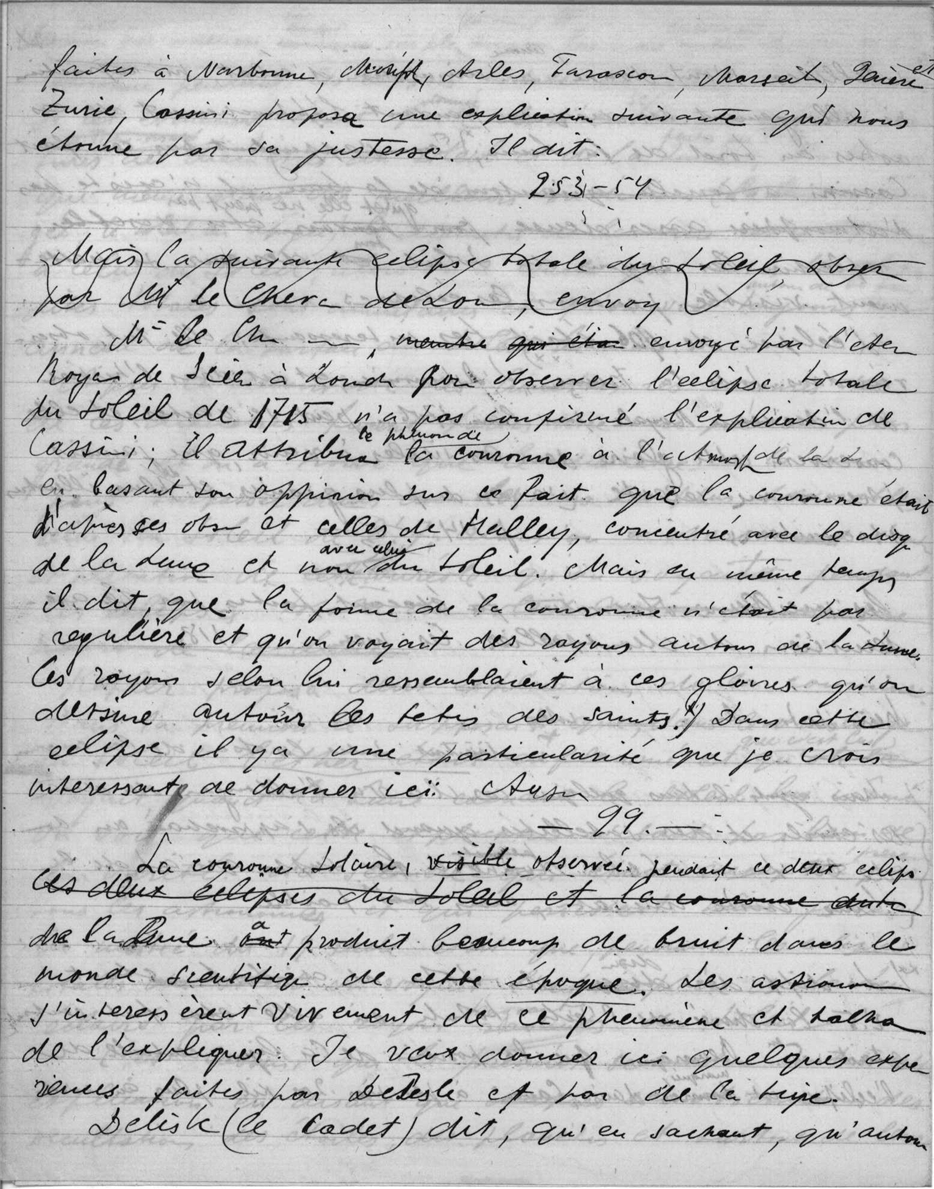 faites à Narbonne, Arles, Tarascon, Marseil, et
Zuric, Cassini proposa une explication suivante qui nous
étonne par sa justesse. Il dit:
253-54
Mais la suivante eclipse totale du Soleil, obser
par Mr le Cheva de Lou, envoy
Mr le Che —, membre qui éta envoyé par l'Acem
Royan de Scien à Lond pour observer l'eclipse totale
du Soleil de 1715 n'a pas confirmé l'explication de
Cassini; Il attribua le phénom de la couronne à l'atmosf de la L
en basant son oppinion sur ce fait que la couronne était
d'après ses obser et celles de Halley, concentré avec le disq
de la Lune et non avec celui du Soleil. Mais en même temps
il dit, que la forme de la couronne n'était pas
regulière et qu'on voyait des rayons autour de la Lune.
Ces rayons selon lui ressemblaient à ces gloires qu'on
dessine autour les tetes des saints. Dans cette
eclipse il y a une particularité que je crois
interessant de donner ici:
— 99. —
La couronne Solaire, visible observée pendant ce deux eclips
ces deux eclipses du Soleil et la couronne
de la Lune ont a produit beaucoup de bruit dans le
monde scientifiq de cette époque. Les astronom
s'interessèrent vivement de ce phenomène et
de l'expliquer. Je veux donner ici quelques expe
riences faites par Delisle et par de la Hire.
Delisle (le Cadet) dit, qu'en sachant, qu'autour